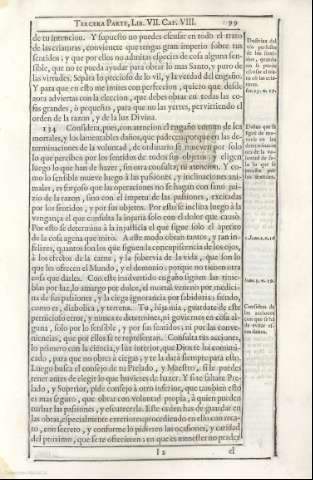 TERCERA PARTE, LIB. VII. CAP. VIII. 99
de tu intencion. Y supuesto no puedes escusar en todo el trato
de las criaturas, conviene que tengas gran imperio sobre tus
sentidos; y que por ellos no admitas especies de cosa alguna sen-
sible, que no te pueda ayudar para obrar lo mas Santo, y puro de
las virtudes. Separa lo precioso de lo vil, y la verdad del engaño.
Y para que en esto me imites con perfeccion, quiero que desde
aora adviertas con la eleccion, que debes obrar en todas las co-
sas grandes, ò pequeñas, para que no las yerres, pervirtiendo el
orden de la razon, y de la luz Divina.
134 Considera, pues, con atencion el engaño comun de los
mortales, y los lamentables daños, que padecen; porque en las de-
terminaciones de la voluntad, de ordinario se mueven por solo
lo que perciben por los sentidos de todos sus objetos, y eligen
luego lo que han de hazer, sin otra consulta, ni atencion. Y co-
mo lo sensible mueve luego à las passiones, y inclinaciones ani-
males, es forçoso que las operaciones no se hagan con sano jui-
zio de la razon, sino con el impetu de las passiones, excitadas
por los sentidos, y por sus objetos. Por esto se inclina luego à la
vengança el que consulta la injuria solo con el dolor que causò.
Por esto se determina à la injusticia el que sigue solo el apetito
de la cosa agena que mirò. A este modo obran tantos, y tan in-
felizes, quantos son los que siguen la concupiscencia de los ojos,
à los efectos de la carne, y la sobervia de la vida, que son los
que les ofrecen el Mundo, y el demonio; porque no tienen otra
cosa que darles. Con este inadvertido engaño siguen las tinie-
blas por luz, lo amargo por dulce, el mortal veneno por medici-
na de sus passiones, y la ciega ignorancia por sabiduria; siendo,
como es, diabolica, y terrena. Tu, hija mia, guardate de este
pernicioso error, y nunca te determines, ni goviernes en cosa al-
guna, solo por lo sensible, y por sus sentidos; ni por las conve-
niencias, que por ellos se te representan. Consulta tus acciones,
lo primero con la ciencia, y luz interior, que Dios te ha comuni-
cado, para que no obres à ciegas; y te la darà siempre para esto.
Luego busca el consejo de tu Prelado, y Maestro, si le puedes
tener antes de elegir lo que huvieres de hazer. Y si te faltare Pre-
lado, y Superior, pide consejo à otro inferior, que tambien esto
es mas seguro, que obrar con voluntad propia, à quien pueden
turbar las passiones, y escurecerla. Este orden has de guardar en
las obras, especialmente exteriores; procediendo en ello con reca-
to, con secreto, y conforme lo pidieren las ocasiones, y caridad
del proximo, que se te ofrecieren; en que es menester no perder
I 2 el